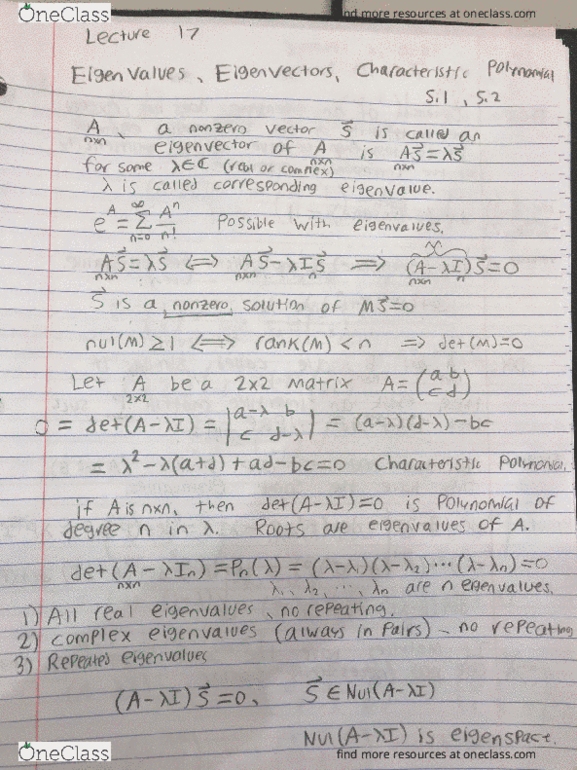 OneClass
find more resources at oneclass.com
Lecture 17
Eigenvalues, Eigenvectors, Characteristic Polynomial
5.1, 5.2
A, a nonzero vector s⃗ is called an
nxn
eigenvector of A is As⃗=λs⃗
nxn nxn
for some λ∈ℂ (real or complex)
λ is called corresponding eigenvalue.
e^A = ∑_{n=0}^∞ A^n/n! Possible with eigenvalues.
As⃗=λs⃗ ⟺ As⃗-λIs⃗ ⟹ (A-λI)s⃗=0
nxn nxn n nxn n
s⃗ is a nonzero solution of Ms⃗=0
nul(M)≥1 ⟺ rank(M)<n ⇒ det(M)=0
Let A be a 2x2 matrix A=(a b
2x2 c d)
0 = det(A-λI) = |a-λ b
c d-λ| = (a-λ)(d-λ)-bc
= λ²-λ(a+d)+ad-bc=0 Characteristic Polynomial
if A is nxn, then det(A-λI)=0 is Polynomial of
degree n in λ. Roots are eigenvalues of A.
det(A-λIn)=Pn(λ)=(λ-λ)(λ-λ₂)⋯(λ-λn)=0
nxn λ₁, λ₂, ⋯, λn are n eigenvalues.
1) All real eigenvalues, no repeating.
2) complex eigenvalues (always in pairs), no repeating
3) Repeated eigenvalues
(A-λI)s⃗=0, s⃗∈Nul(A-λI)
Nul(A-λI) is eigenspace.
OneClass
find more resources at oneclass.com